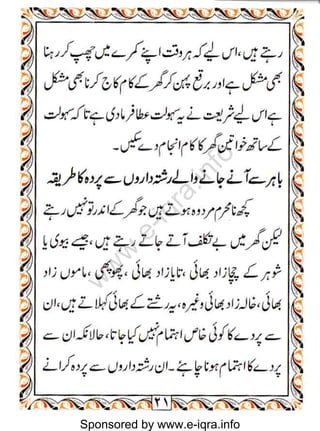 رہتے ہیں، اس لیے کہ ہر وقت اپنے کمرے میں چھپ کر رہنا
بھی مشکل ہے اور برقع پہن کر گھر کے کام کاج کرنا بھی مشکل
ہے اس لیے شریعت نے یہ سہولت عطا فرمادی ہے تا کہ سہولت
کے ساتھ خواتین گھر کا کام انجام دے سکیں۔
باہر سے آنے جانے والے رشتہ داروں سے پردہ کا طریقہ
کچھ نامحرم مرد وہ ہوتے ہیں جو گھر کے اندر تو نہیں رہتے
لیکن گھر میں بے تکلف آتے جاتے رہتے ہیں، جیسے بیوی یا
شوہر کے چچازاد بھائی، تایازاد بھائی، پھوپھی، ماموں زاد
بھائی، خالہ زاد بھائی وغیرہ، یہ رشتے کے بھائی کہلاتے ہیں، ان
سے پردے کا کوئی خاص اہتمام نہیں کیا جاتا، حالانکہ ان سے
پردے کا اہتمام ہونا چاہئے۔ ان رشتہ داروں سے پردہ کرانے
۲۱
www.e-iqra.info
Sponsored by www.e-iqra.info